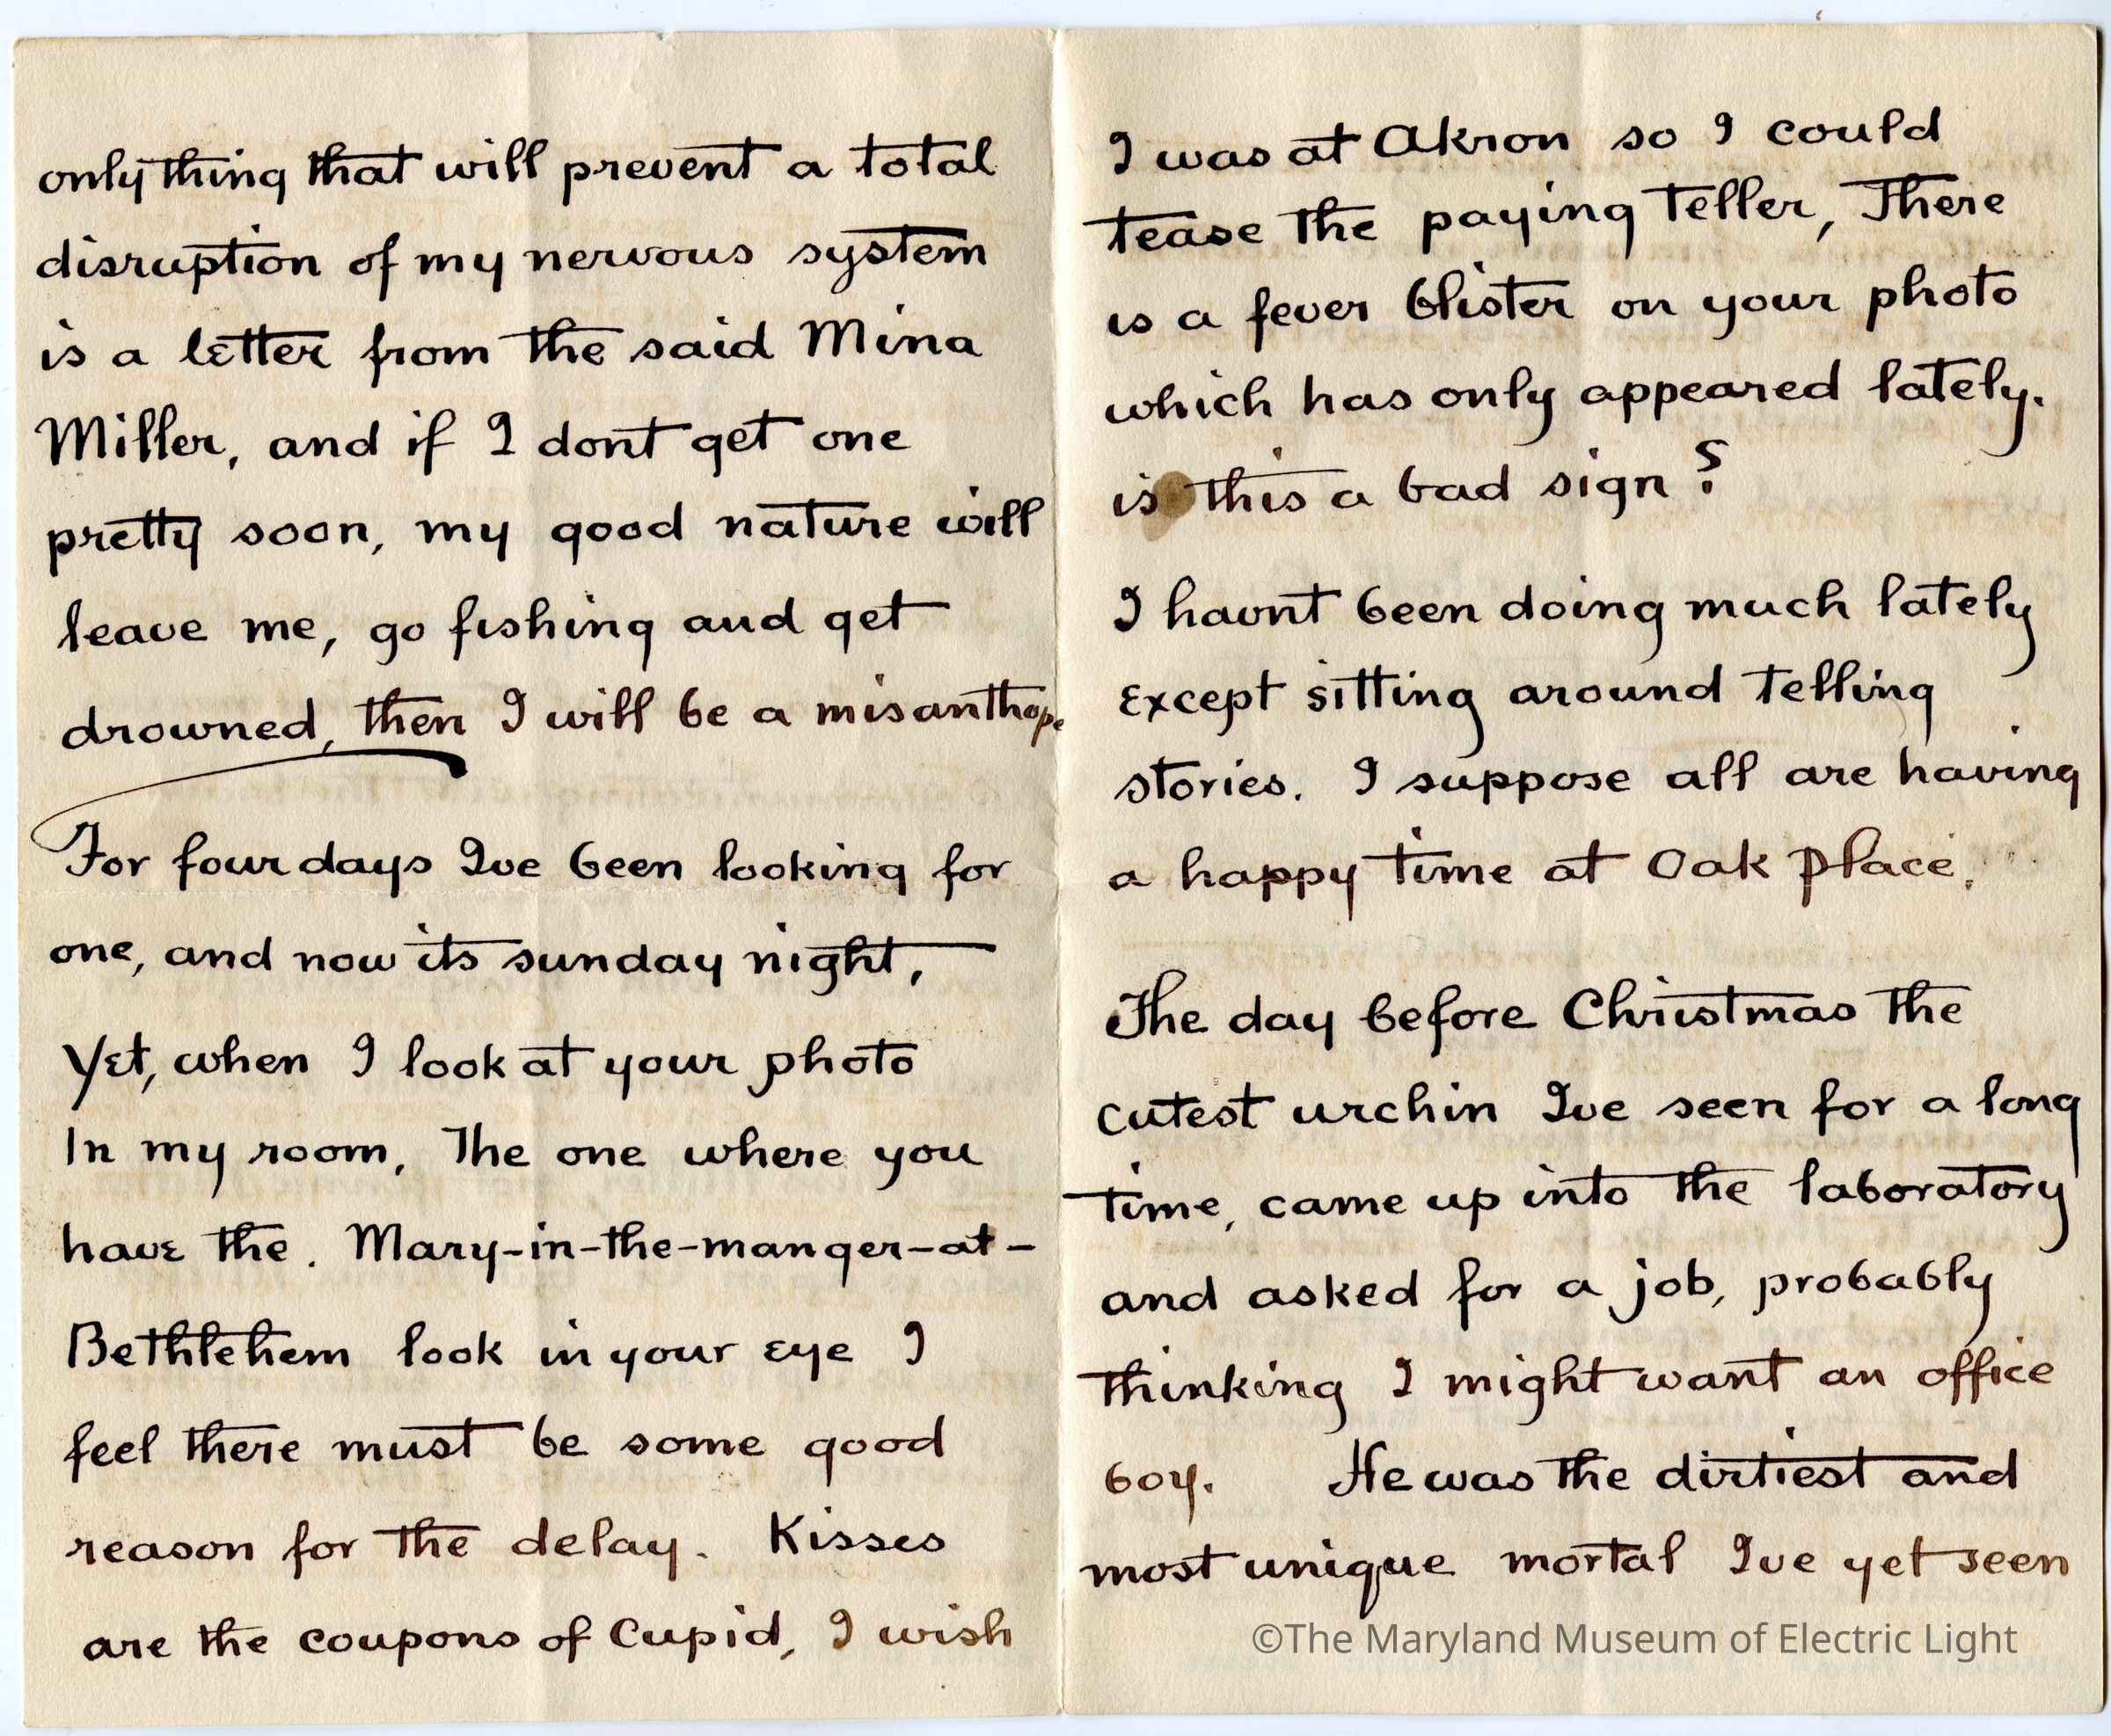 only thing that will prevent a total
disruption of my nervous system
is a letter from the said Mina
Miller, and if I dont get one
pretty soon, my good nature will
leave me, go fishing and get
drowned, then I will be a misanthope
For four days Ive been looking for
one, and now its sunday night,
Yet, when I look at your photo
In my room, The one where you
have the. Mary-in-the-manger-at-
Bethlehem look in your eye I
feel there must be some good
reason for the delay. Kisses
are the coupons of Cupid, I wish
I was at Akron so I could
tease the paying teller, There
is a fever blister on your photo
which has only appeared lately.
is this a bad sign?
I havnt been doing much lately
except sitting around telling
stories. I suppose all are having
a happy time at Oak place.
The day before Christmas the
cutest urchin Ive seen for a long
time, came up into the laboratory
and asked for a job, probably
thinking I might want an office
boy. He was the dirtiest and
most unique mortal Ive yet seen
©The Maryland Museum of Electric Light